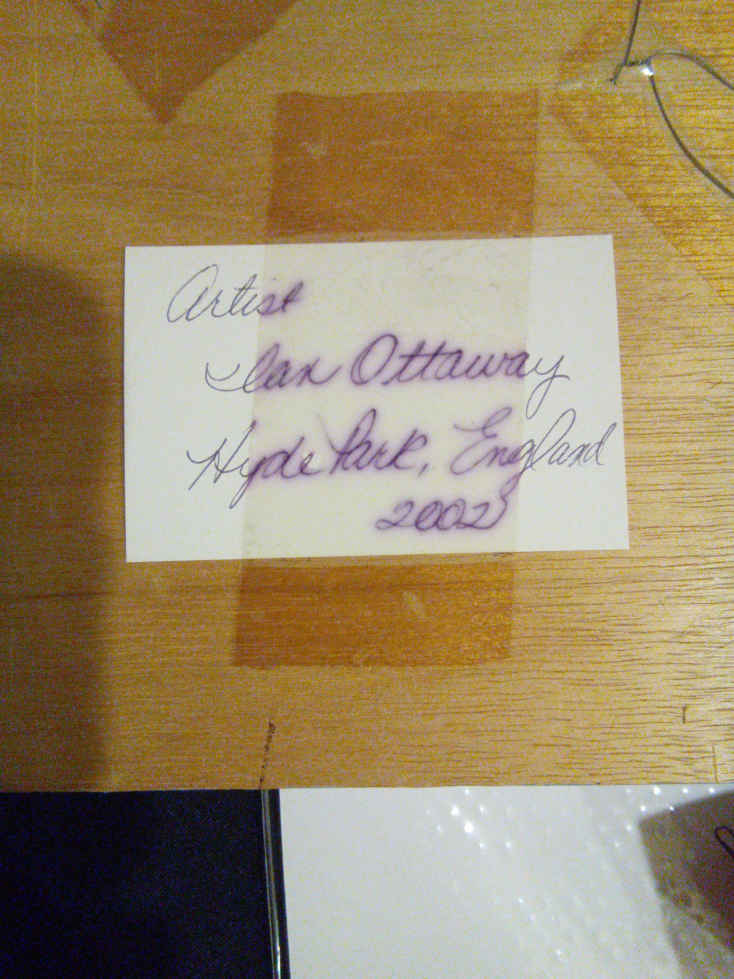 Artist
Ian Ottaway
Hyde Park, England
2002